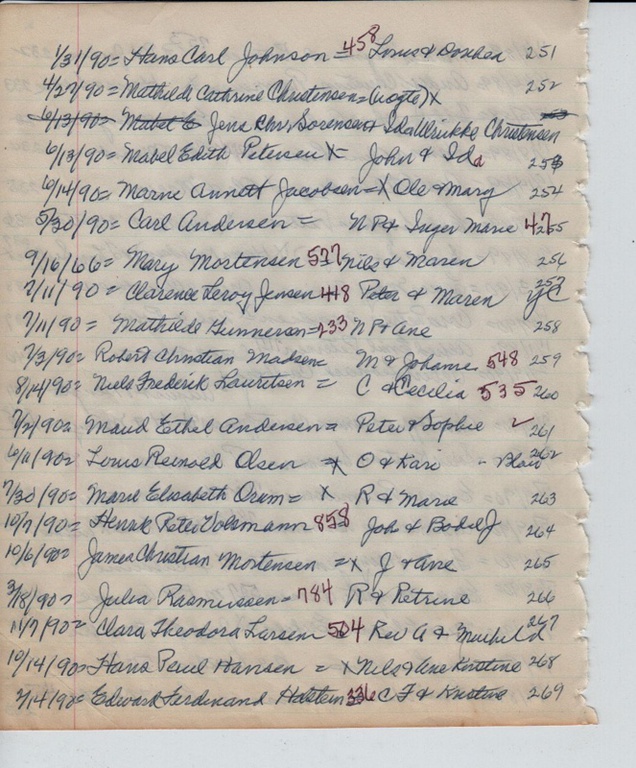 1/31/90= Hans Carl Johnson = 458 Louis & Dorthea 251
4/27/90= Mathilde Cathrine Christensen = (Vogte) X 252
6/13/90= Mabel E Jens Chr Sorensen & Ida Ulrikke Christensen 253
6/13/90= Mabel Edith Petersen X John & Ida 253
6/14/90= Marne Annett Jacobsen = X Ole & Mary 254
5/30/90= Carl Andersen = N P & Inger Marie 47 255
9/16/66= Mary Mortensen 577 Nils & Maren 256
7/11/90= Clarence Leroy Jensen 418 Peter & Maren 257
7/11/90= Mathilde Gunnerson = 233 N P & Ane 258
7/3/90= Robert Christian Madsen = M & Johanne 548 259
8/14/90= Niels Frederik Lauritsen = C & Cecilia 535 260
7/2/90= Maud Ethel Andersen = Peter & Sophie ✓ 261
6/11/90= Louis Reinold Olsen = X O & Kari - Blair 262
7/30/90= Marie Elisabeth Orum = X R & Marie 263
10/7/90= Henrik Peter Volsmann 858 John & Bodel J 264
10/6/90= James Christian Mortensen = X J & Ane 265
3/18/90= Julia Rasmussen = 784 R & Petrine 266
11/7/90= Clara Theodora Larsen 504 Rev A & 267
10/14/90= Hans Paul Hansen = X Nils & Ane Kirstine 268
2/14/90= Edward Ferdinand Halstein 336 C F & Kirstine 269